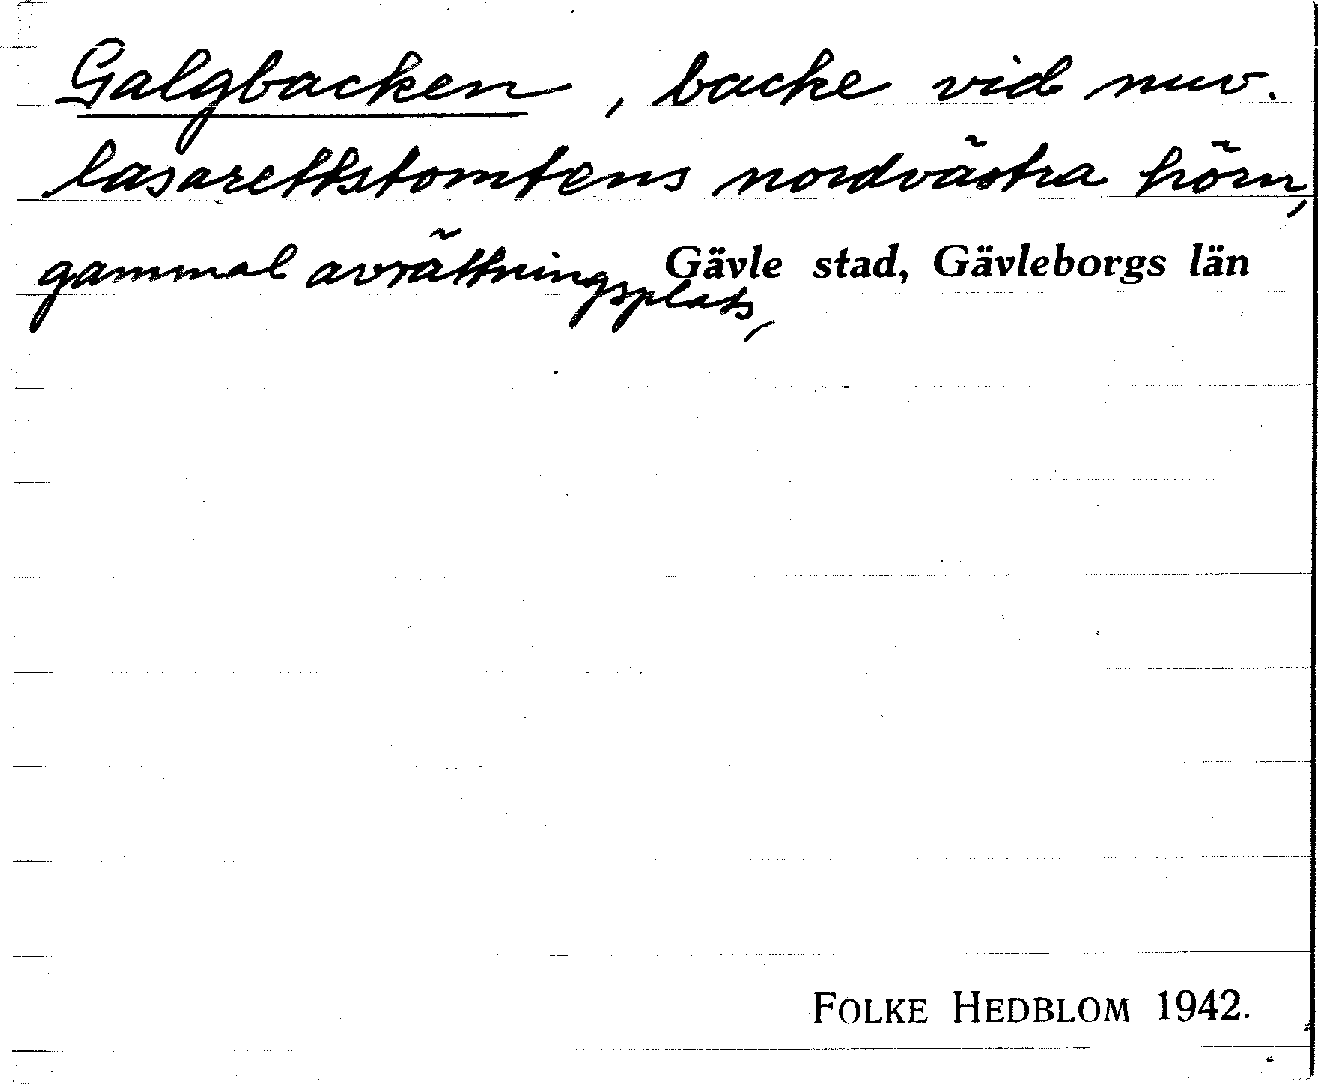 Galgbacken, backe vid nuv.
lasarettstomtens nordvästra hörn,
gammal avrättningsplats, Gävle stad, Gävleborgs län
FOLKE HEDBLOM 1942.